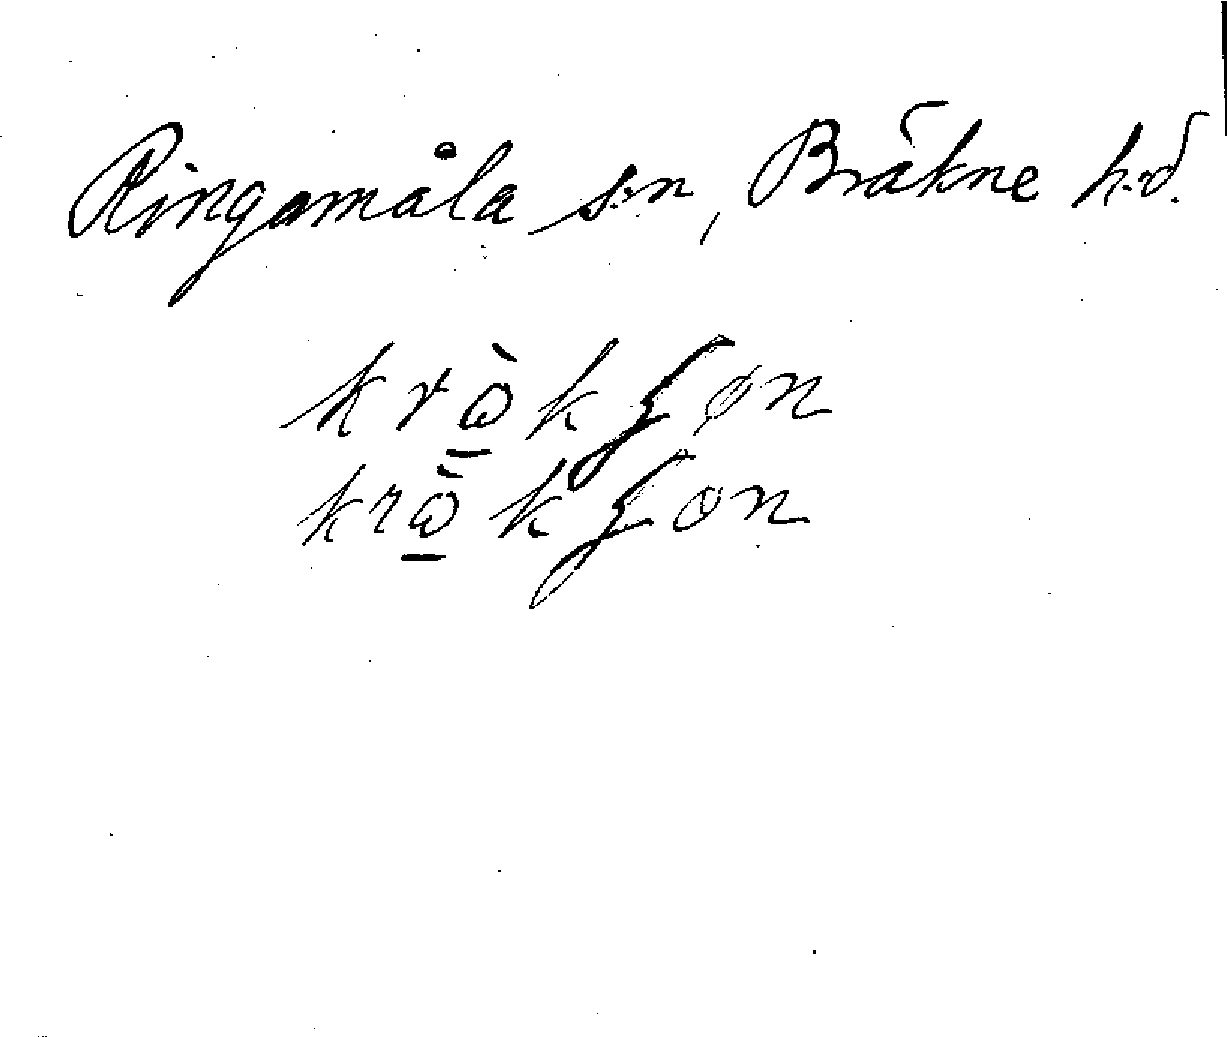 Ringamåla s:n, Bräkne h:d.
krὼ̱kʃøn
krὼ̱kʃon